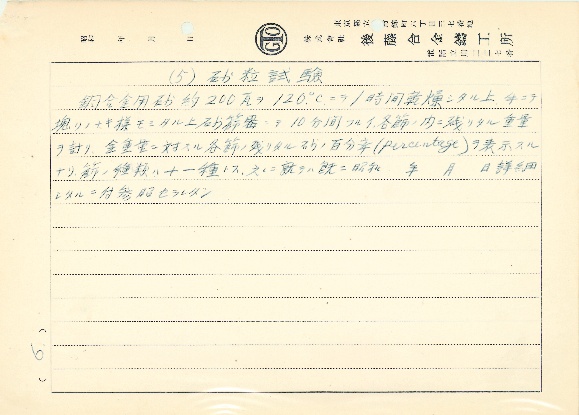 昭和 年 月 日
株式会社 後藤合金鋳工所
(5) 砂粒試験
銅合金用砂約200瓦ヲ120°Cニテ1時間乾燥シタル上手ニテ
塊リノナキ様モミタル上砂篩器ニテ10分間フルイ各篩ノ内ニ残リタル重量
ヲ計リ全重量ニ対スル各篩ノ残リタル砂ノ百分率(percentage)ヲ表示スル
ナリ、篩ノ種類ハ十一種トス、之ニ就テハ既ニ昭和 年 月 日詳細
シタルニ付参照セラレタシ
(6)